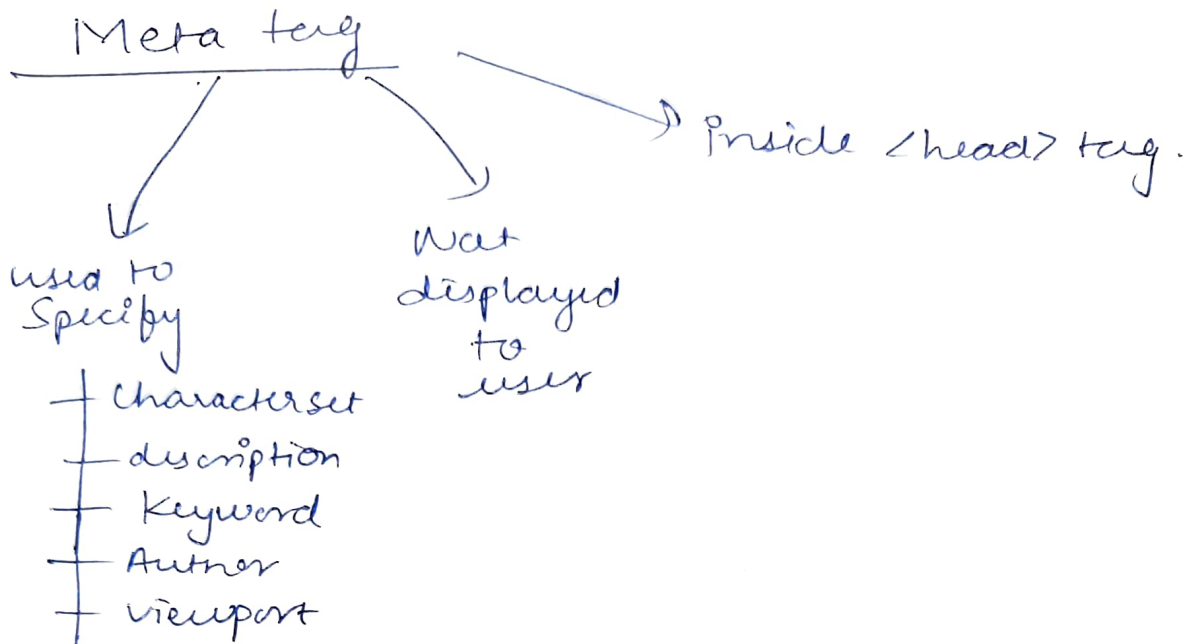 Meta tag
inside <head> tag.
used to
Specify
Not
displayed
to
user
Characterset
description
Keyword
Author
viewport